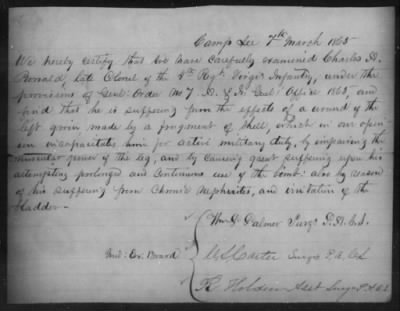 Camp Lee 7th March 1865
We hereby certify that we have carefully examined Charles A.
Ronald, late Colonel of the 4th Regt. Virga Infantry, under the
provisions of Genl. Order No 7 A. & I. Genl Office 1865, and
find that he is suffering from the effects of a wound of the
left groin, made by a fragment of Shell, which in our opin
ion incapacitates him for active military duty, by impairing the
muscular power of the leg, and by causing great suffering upon his
attempting prolonged and continuous use of the limb: also by reason
of his suffering from Chronic Nephritis, and irritation of the
bladder —
Wm. D. Palmer Surgn P.A.C.S.
Med: Ex. Board
Carter Surgn P.A. C.S.
R. Holden Asst Surgn P.A.C.S.